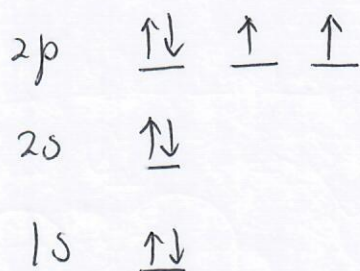 2p ↑↓ ↑ ↑
2s ↑↓
1s ↑↓